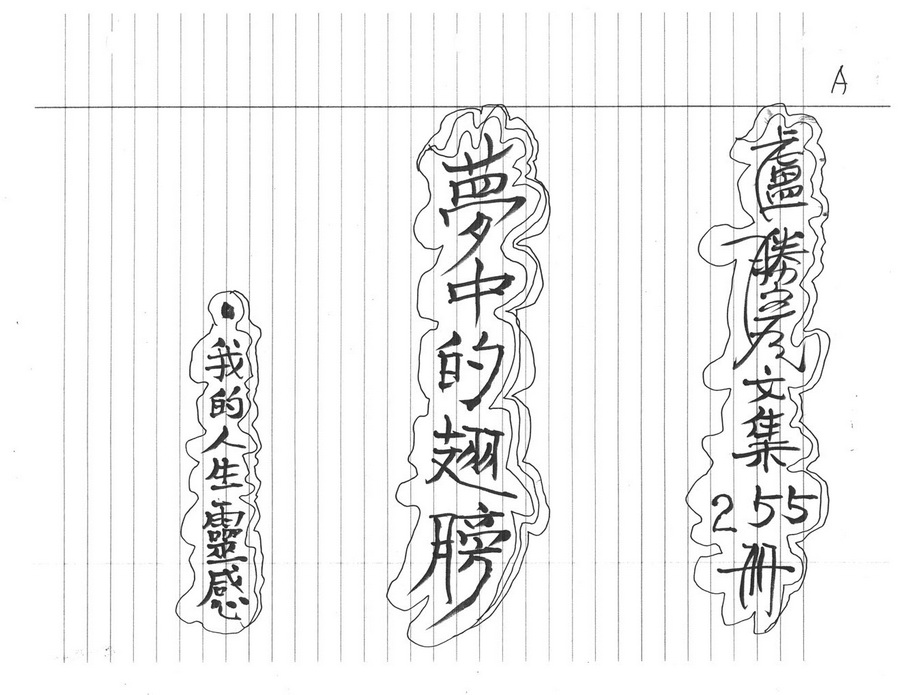 A
盧勝彥文集255冊
夢中的翅膀
•我的人生靈感